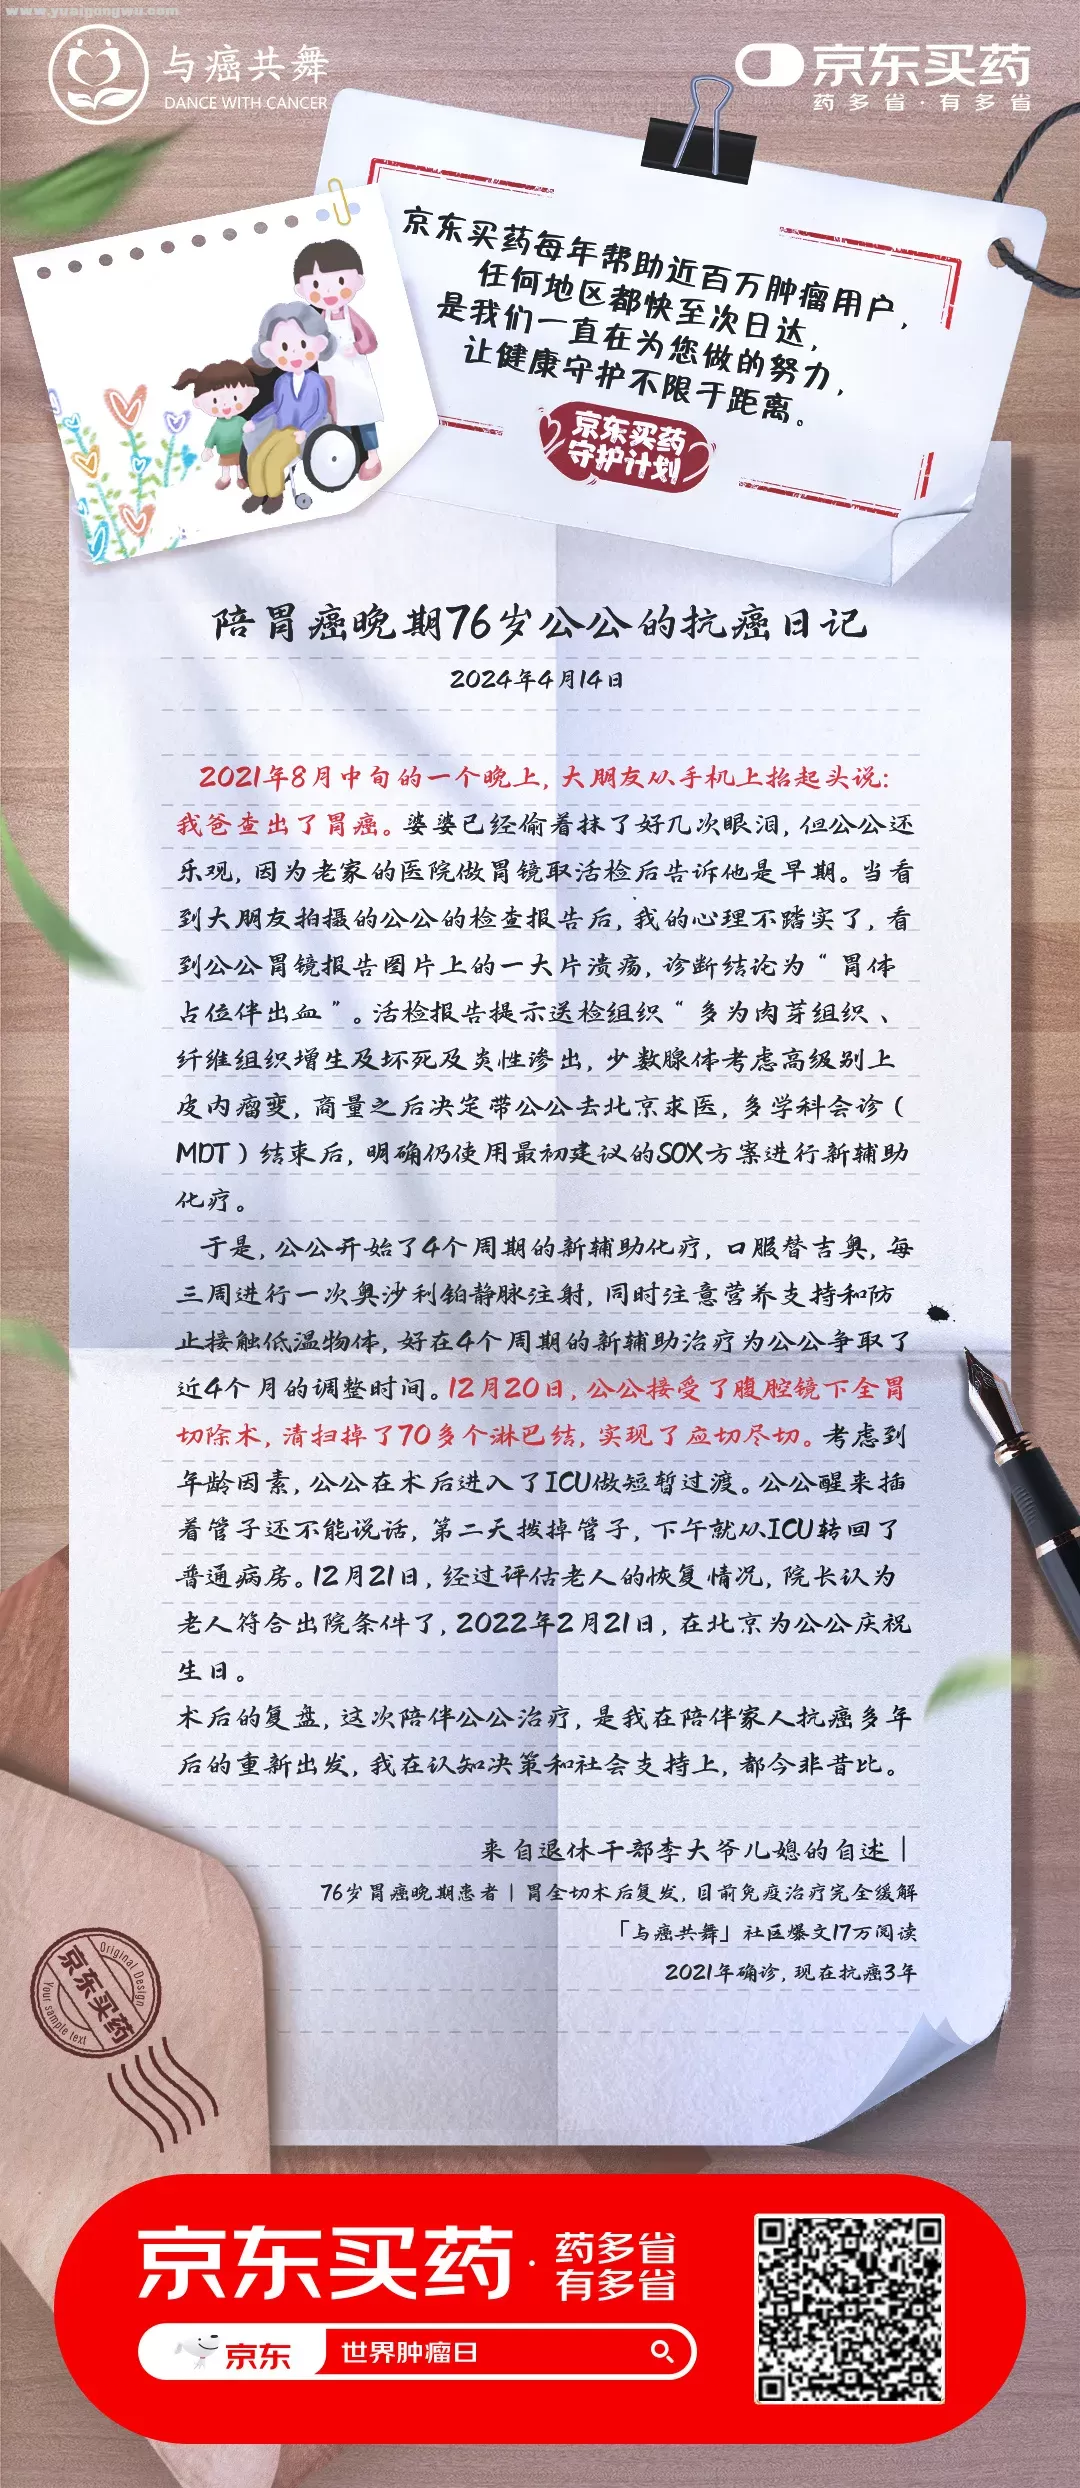 www.yuaigongwu.com
与癌共舞
DANCE WITH CANCER
京东买药
药多省·有多省
京东买药每年帮助近百万肿瘤用户，
任何地区都快至次日达，
是我们一直在为您做的努力，
让健康守护不限于距离。
京东买药
守护计划
陪胃癌晚期76岁公公的抗癌日记
2024年4月14日
2021年8月中旬的一个晚上，大朋友从手机上抬起头说：
我爸查出了胃癌。婆婆已经偷着抹了好几次眼泪，但公公还
乐观，因为老家的医院做胃镜取活检后告诉他是早期。当看
到大朋友拍摄的公公的检查报告后，我的心理不踏实了，看
到公公胃镜报告图片上的一大片溃疡，诊断结论为“胃体
占位伴出血”。活检报告提示送检组织“多为肉芽组织、
纤维组织增生及坏死及炎性渗出，少数腺体考虑高级别上
皮内瘤变，商量之后决定带公公去北京求医，多学科会诊（
MDT）结束后，明确仍使用最初建议的SOX方案进行新辅助
化疗。
于是，公公开始了4个周期的新辅助化疗，口服替吉奥，每
三周进行一次奥沙利铂静脉注射，同时注意营养支持和防
止接触低温物体，好在4个周期的新辅助治疗为公公争取了
近4个月的调整时间。12月20日，公公接受了腹腔镜下全胃
切除术，清扫掉了70多个淋巴结，实现了应切尽切。考虑到
年龄因素，公公在术后进入了ICU做短暂过渡。公公醒来插
着管子还不能说话，第二天拨掉管子，下午就从ICU转回了
普通病房。12月21日，经过评估老人的恢复情况，院长认为
老人符合出院条件了，2022年2月21日，在北京为公公庆祝
生日。
术后的复盘，这次陪伴公公治疗，是我在陪伴家人抗癌多年
后的重新出发，我在认知决策和社会支持上，都今非昔比。
来自退休干部李大爷儿媳的自述｜
76岁胃癌晚期患者｜胃全切术后复发，目前免疫治疗完全缓解
「与癌共舞」社区爆文17万阅读
2021年确诊，现在抗癌3年
Original Design
京东买药
Your sample text
京东买药·药多省
有多省
京东 世界肿瘤日